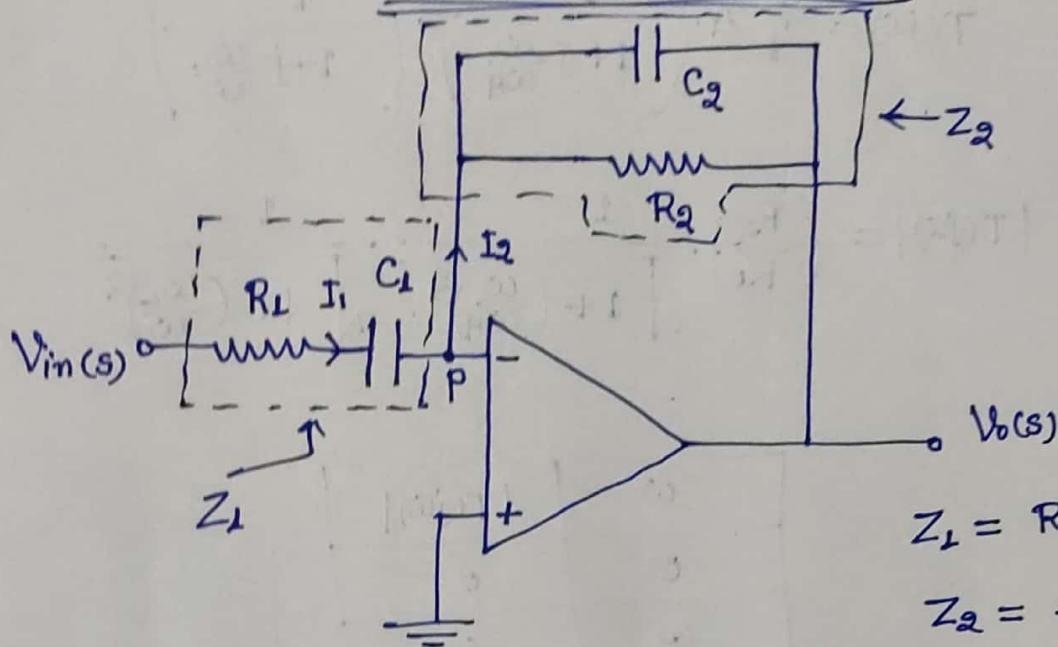 C2
← Z2
R2
I2
R1 I1 C1
Vin(s)
P
-
Vo(s)
Z1
+
Z1 = R
Z2 =